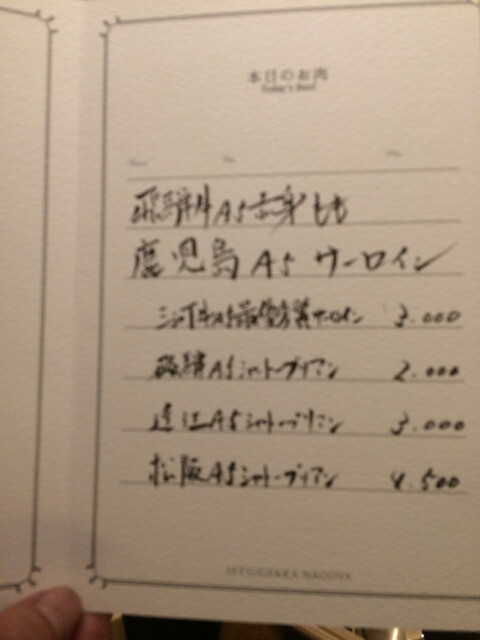 本日のお肉
Today's Beef
飛騨牛A5赤身もも
鹿児島A5サーロイン
三河牛A5最優秀賞サーロイン 3.000
A5シャトーブリアン 2.000
近江A5シャトーブリアン 3.000
松阪A5シャトーブリアン 4.500
SETSUGEKKA NAGOYA